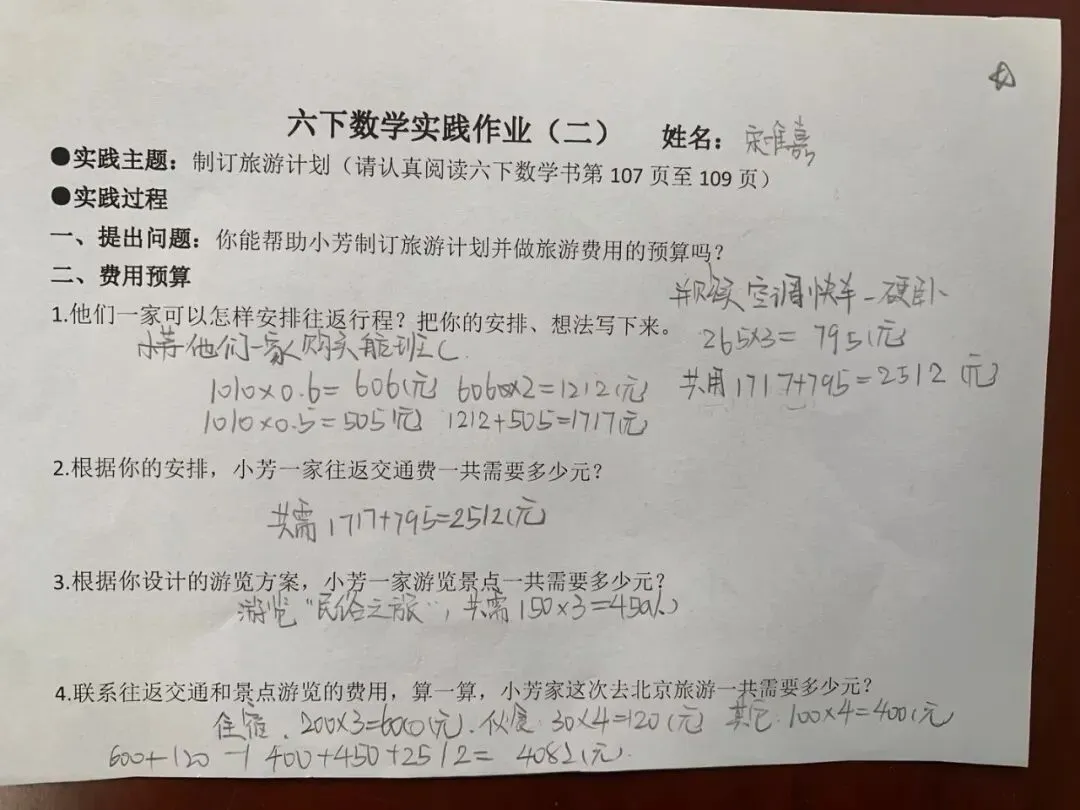 六下数学实践作业（二） 姓名：宋唯嘉
●实践主题：制订旅游计划（请认真阅读六下数学书第107页至109页）
●实践过程
一、提出问题：你能帮助小芳制订旅游计划并做旅游费用的预算吗？
二、费用预算
1.他们一家可以怎样安排往返行程？把你的安排、想法写下来。
他们一家购买航班
1010×0.6=606(元) 606×2=1212(元)
1010×0.5=505(元 1212+505=1717(元
购买空调快车-硬卧
265×3=795(元)
共用1717+795=2512(元)
2.根据你的安排，小芳一家往返交通费一共需要多少元？
共需1717+795=2512(元
3.根据你设计的游览方案，小芳一家游览景点一共需要多少元？
游览“民俗之旅”，共需150×3=450
4.联系往返交通和景点游览的费用，算一算，小芳家这次去北京旅游一共需要多少元？
住宿.200×3=600(元).伙食:30×4=120(元) 其它:100×4=400(元
600+120+400+450+2512=4082(元.